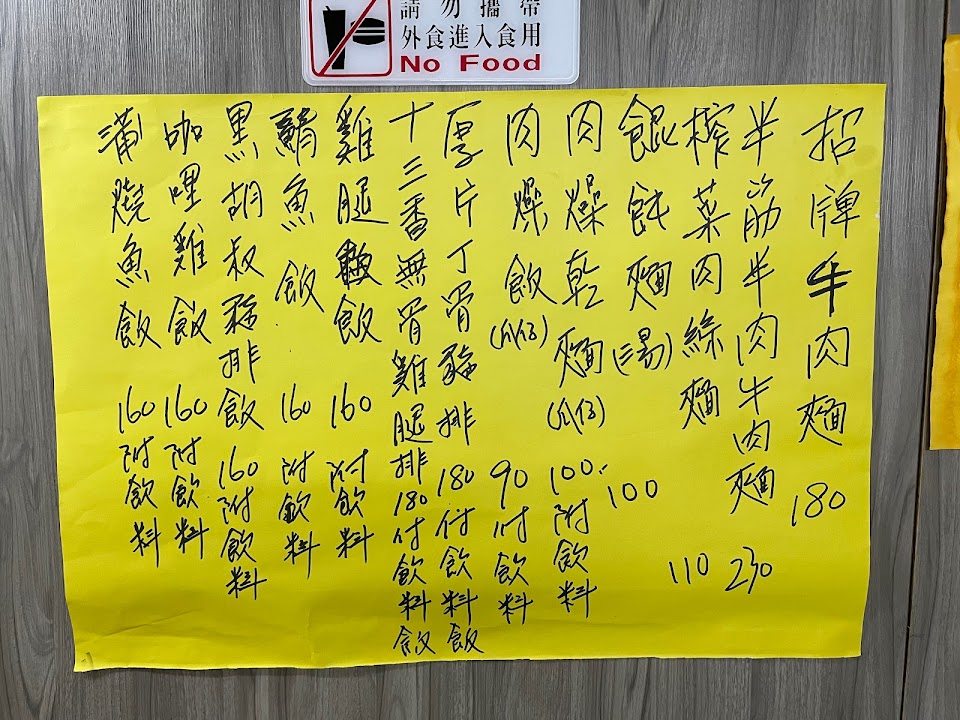 請勿攜帶
外食進入食用
No Food
招牌牛肉麵 180
半筋半肉牛肉麵 230
榨菜肉絲麵 110
餛飩麵(湯) 100
肉燥乾麵(瓜仔) 100.附飲料
肉燥飯(瓜仔) 90付飲料
厚片丁骨豬排 180付飲料飯
十三香無骨雞腿排180付飲料飯
雞腿飯 160 附飲料
鯖魚飯 160 附飲料
黑胡椒豬排飯 160附飲料
咖哩雞飯 160附飲料
蒲燒魚飯 160附飲料